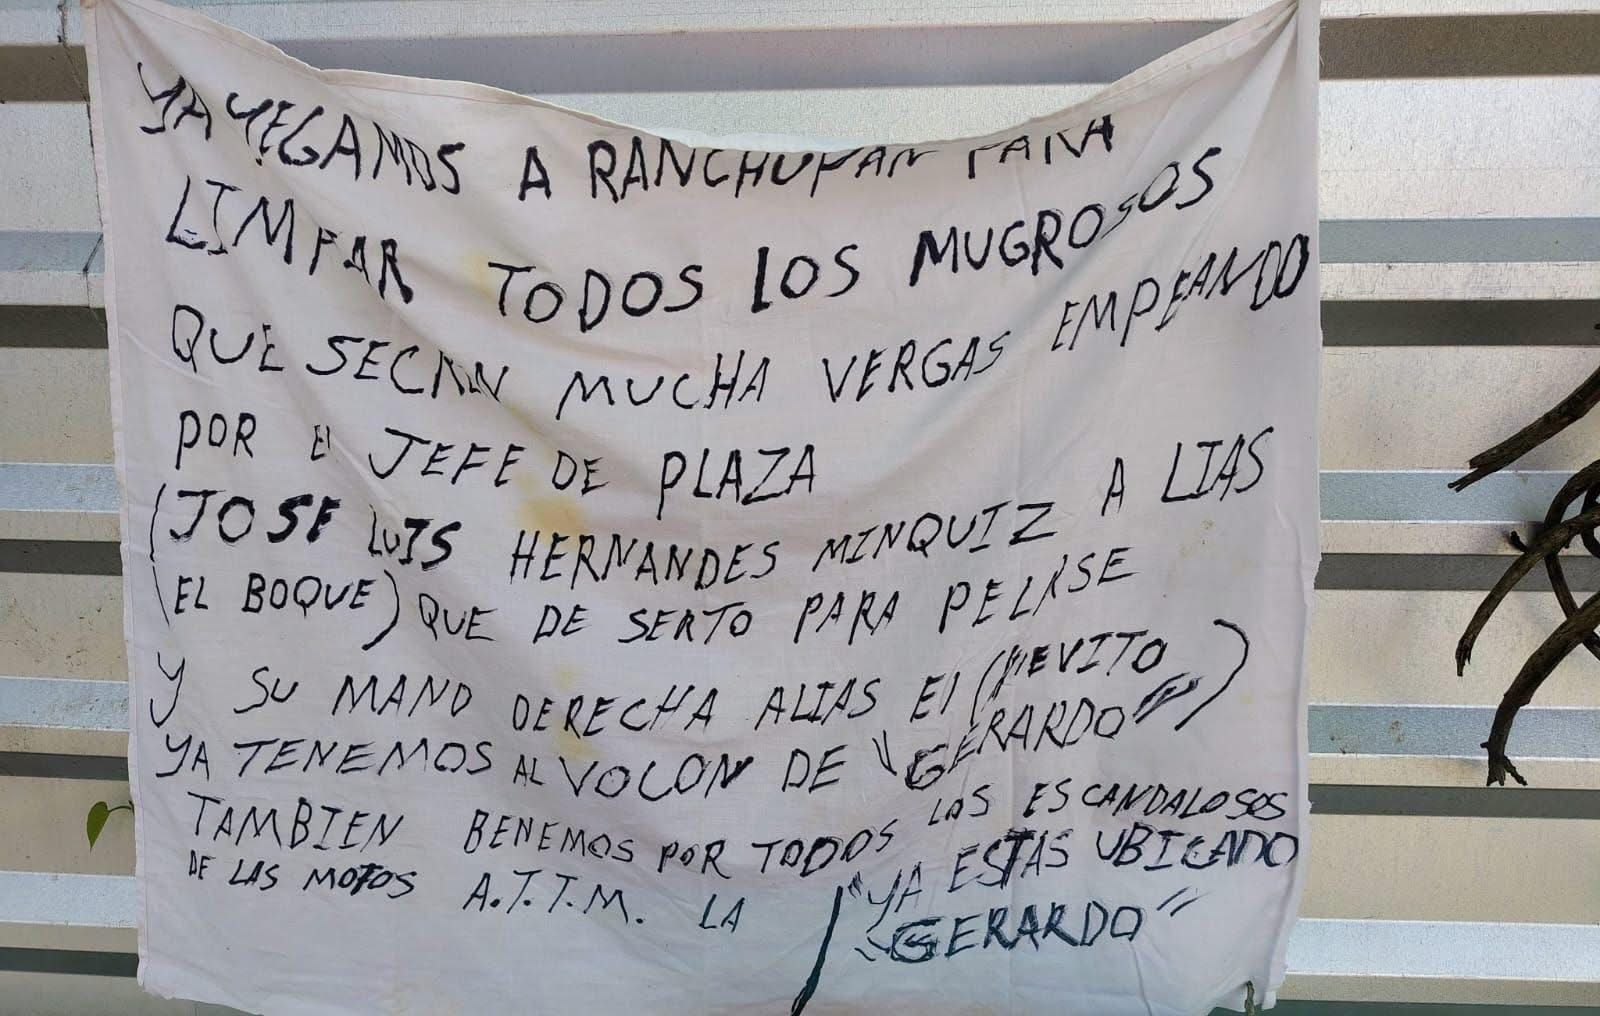 YA YEGAMOS A RANCHUPAN PARA
LIMPAR TODOS LOS MUGROSOS
QUE SECREN MUCHA VERGAS EMPEANDO
POR El JEFE DE PLAZA
(JOSE LUIS HERNANDES MINQUIZ A LIAS
(EL BOQUE) QUE DE SERTO PARA PELRSE
Y SU MANO DERECHA ALIAS El ( GERARDO")
YA TENEMOS AL VOCON DE "GERARDO"
TAMBIEN BENEMOS POR TODOS LOS ESCANDALOSOS
DE LAS MOTOS A.T.T.M. LA "YA ESTAS UBICADO
"GERARDO"